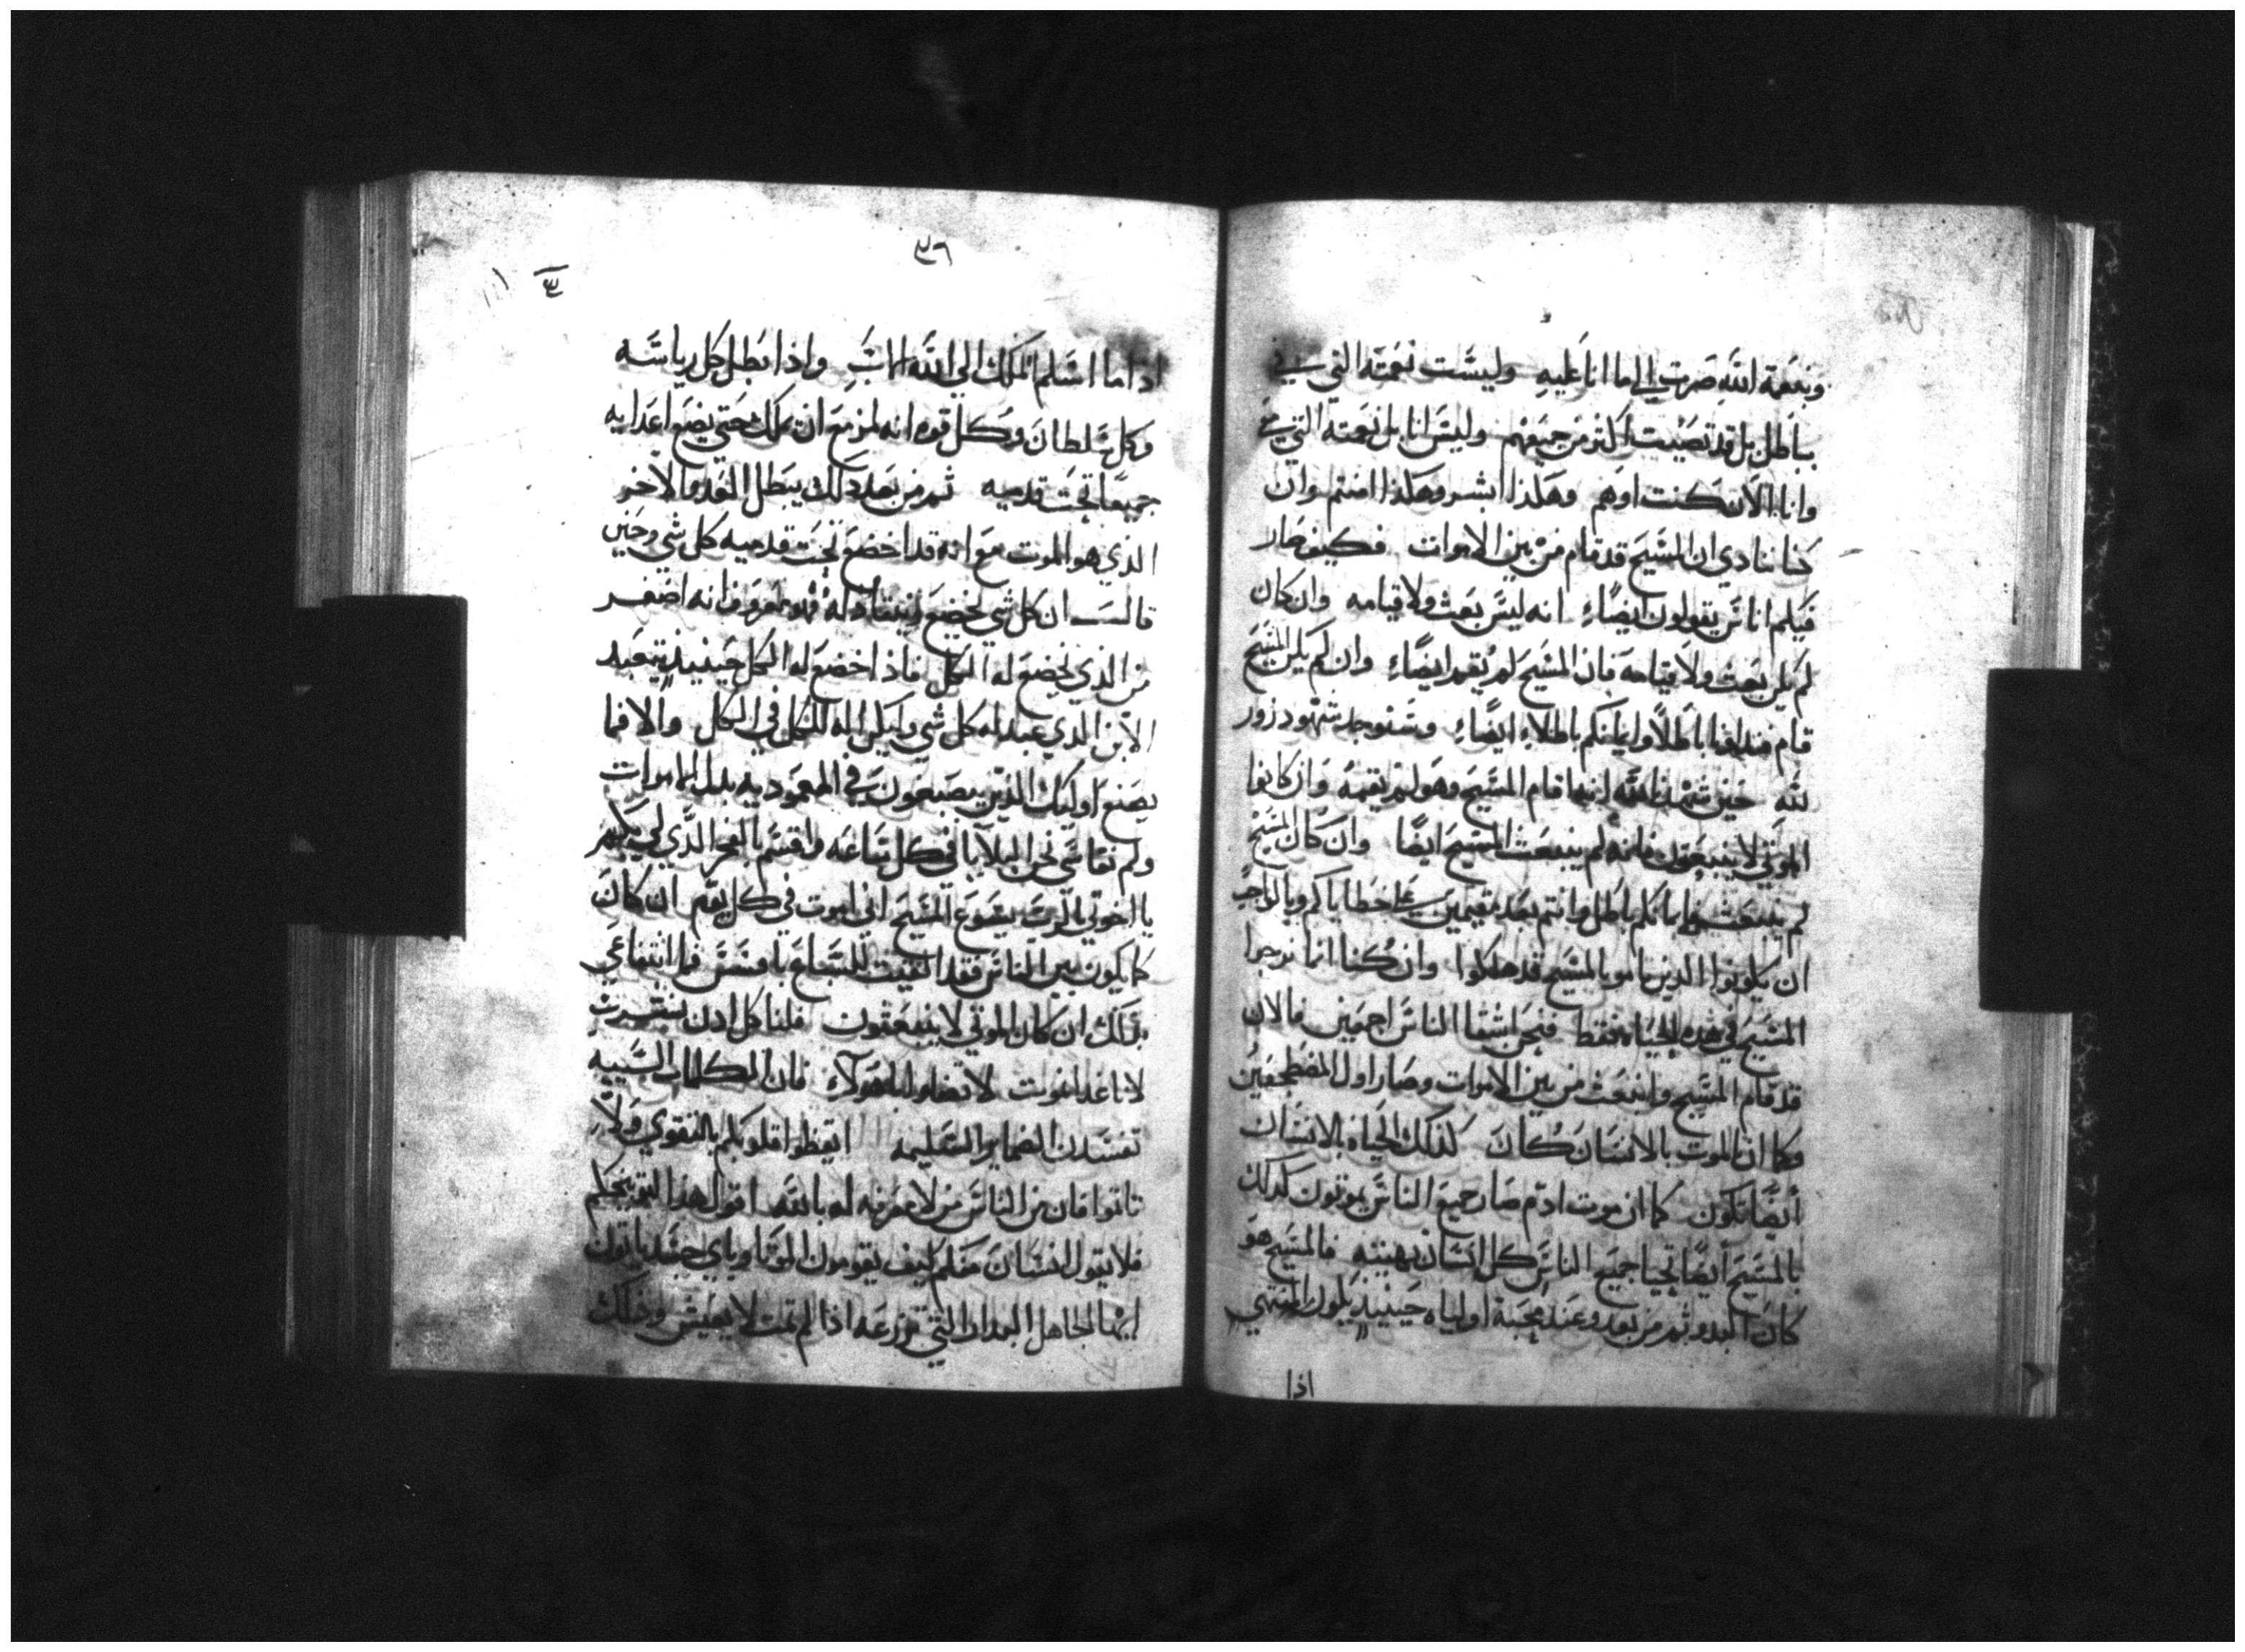 وبنعمة الله صرت الي ما انا عليه وليست نعمته التي في
بباطل بل قد تصبت اكثر من جميعهم وليس انا بل نعمته التي معي
وانا الان كنت اوهم وهكذا ابشر وهكذا امنتم وان
كنا ننادي ان المسيح قد قام من بين الاموات فكيف صار
فيكم اناس يقولون ايضاء انه ليس بعث ولا قيامه وان كان
لم يكن بعث ولا قيامه فان المسيح لم يقم ايضاء وان لم يكن المسيح
قام فندانا باطلا وايمانكم باطلاء ايضاء وسنوجد شهود زور
لله حين شهدنا لله انما قام المسيح وهو لم يقمه وان كانوا
الموتي لا ينبعثون فانه لم ينبعث المسيح ايضا وان كان المسيح
لم ينبعث فايمانكم باطل وانتم بعد مقيمين علي خطاياكم وبالواجب
ان يكونوا الذين ماتوا بالمسيح قد هلكوا وان كنا انما نرجوا
المسيح في هذه الحياه فقط فنحن اشقا الناس اجمعين فالان
قد قام المسيح وانبعث من بين الاموات وصار اول المضطجعين
وكما ان الموت بالانسان كان كذلك الحياه بالانسان
ايضا تكون كما ان موت ادم صار جميع الناس يموتون كذلك
بالمسيح ايضا تحيا جميع الناس كل انسان بهيئته فالمسيح هو
كان البدو ثم من بعد وعند مجية اولياه حينيذ يكون المنتهي
اذا
٣٦
اذا ما اسلم الملك الي الله الاب واذا بطل كل رياسه
وكل سلطان وكل قوه انه لمزمع ان يملك حتي يضع اعدايه
جميعا تحت قدميه ثم من بعد ذلك يبطل العدو الاخر
الذي هو الموت مع انه قد اخضع تحت قدميه كل شي وحين
قال ان كل شي يخضع وينقاد له فهو معروف انه اصغر
من الذي يخضع له الكل فاذا اخضع له الكل حينيذ يتعبد
الابن الذي عبد له كل شي وليكن الله الكل في الكل والا فما
يصنع اوليك الذين يصبغون في المعموديه بدل الاموات
ولم نقاسي نحن البلايا في كل ساعه واقسم بالفخر الذي لي بكم
يا اخوتي بالرب يسوع المسيح اني اموت في كل يوم ان كان
كما يكون بين الناس فقد القيت للسباع بافسس فما انتفاعي
بذلك ان كان الموتي لا ينبعثون فلناكل اذن ونشرب
لانا غدا نموت لا تضلوا يا هولاء فان الكلمات السييه
تفسدن الضماير السليمه ايقظوا قلوبكم بالتقوي ولا
تاتموا فان من الناس من لا معرفه له بالله اقول هذا لتبكيتكم
فلا يقول انسان منكم كيف يقومون الموتا وباي جسد ياتون
ايها الجاهل البدار التي تزرعه اذا لم تمت لا يعيش وذلك